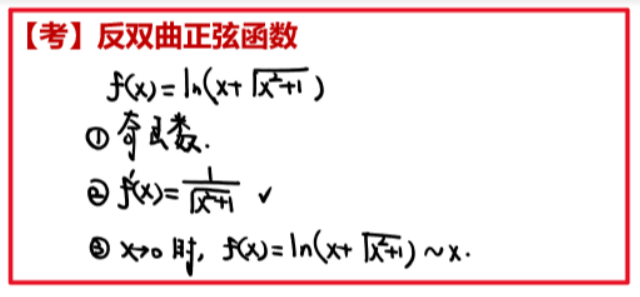 【考】反双曲正弦函数
f(x)=ln(x+√(x²+1))
① 奇函数.
② f'(x)=1/√(x²+1) ✓
③ x→0 时, f(x)=ln(x+√(x²+1))~x.